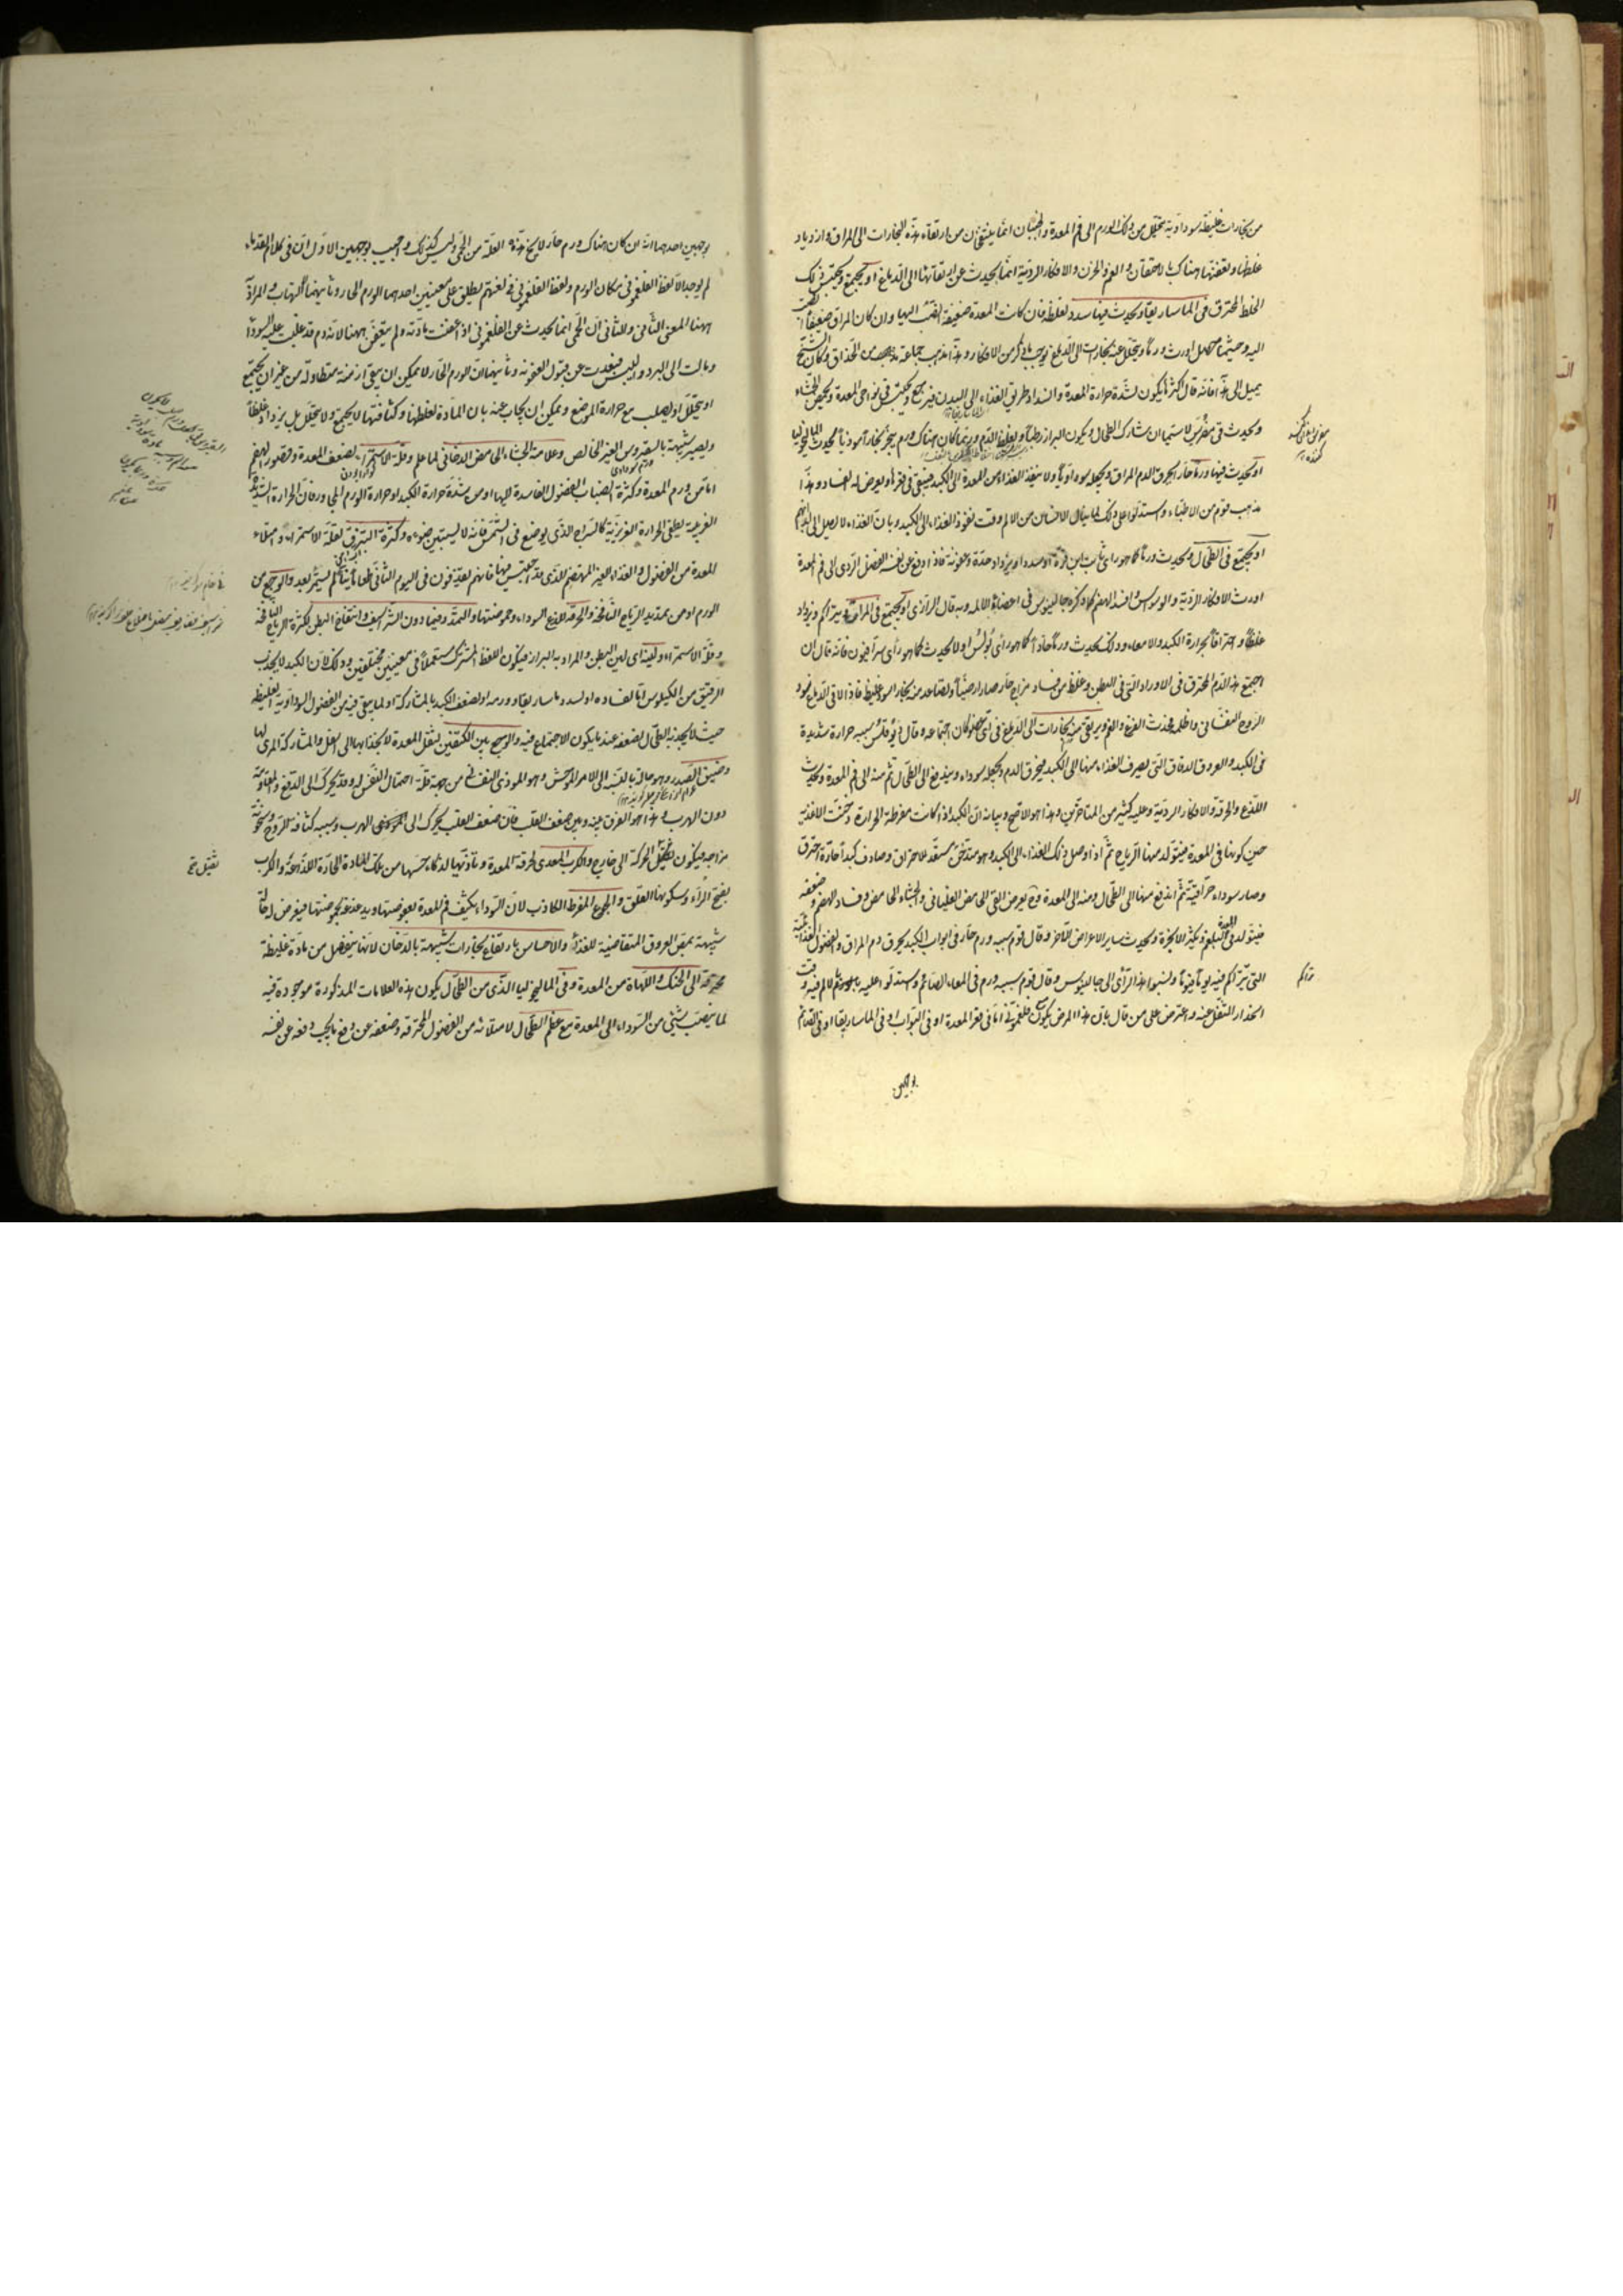 من بخارات غليظة سوداوية تتحلل من ذلك الورم الى فم المعدة والجنبان انما ينتفخان من ارتفاع هذه البخارات الى المراق وازدياد
غلظها وتعفنها هناك بالاحتقان والغم والحزن والافكار الردية انما يحدث عن ارتقائها الى الدماغ او يجتمع ويحتبس ذلك
الخلط المحترق فى الماساريقا ويحدث فيها سدد لغلظه فان كانت المعدة ضعيفة انصب اليها وان كان المراق ضعيفا
اليه وحيثما حصل اورث ورما ويتحلل عنه بخارات الى الدماغ يوجب ما ذكر من الافكار وهذا مذهب جماعة من الحذاق وكان الشيخ
يميل الى هذا فانه قال اكثر ما يكون لشدة حرارة المعدة وانسداد طريق الغذاء الى البدن فيرجع ويحتبس فى نواحى المعدة ويحمض الجشاء
ويحدث قى مضرس لا سيما ان شارك الطحال ويكون البراز رطبا ويغلظ الدم وربما كان هناك ورم يبخر بخارا سوداويا يحدث الماليخوليا
او يحدث فيها ورما حارا يحرق الدم المراق ويجعله سوداويا ولا ينفذ الغذاء من المعدة الى الكبد فيبقى فى قعرها ويعرض له الفساد وهذا
مذهب قوم من الاطباء واستدلوا على ذلك بما ينال الانسان من الالم وقت نفوذ الغذاء الى الكبد وبان الغذاء لا يصل الى ابدانهم
او يجتمع فى الطحال ويحدث ورما كما هو راى ثابت بن قرة او سددا ويزداد حدة وعفونة فاذا دفع عن نفسه الفضل الردى الى فم المعدة
اورث الافكار الردية والوسواس وافسد الهضم كما ذكره جالينوس فى اعضاء الالمة وبه قال الرازى او يجتمع فى المراق ويتراكم ويزداد
غلظا واحتراقا بحرارة الكبد والامعاء وذلك يحدث ورما حادا كما هو رأى بولس او لا يحدث كما هو رأى سرافيون فانه قال ان
اجتمع هذا الدم المحترق فى الاوراد التى فى البطن وغلظ من فساد مزاج حار صار ارضيا وتصاعد منه بخار اسود غليظ فاذا لاقى الدماغ سود
الروح النفسانى واظلمه فحدث الفزع والغم ويرتقى منه بخارات الى الدماغ فى اى عضو كان اجتماعه وقال سببه حرارة شديدة
فى الكبد والعروق الدقاق التى يصرف الغذاء منها الى الكبد فيحرق الدم ويجعله سوداء ويندفع الى الطحال ثم منه الى فم المعدة ويحدث
اللذع والحرقة والافكار الردية وعليه كثير من المتاخرين وهذا هو الاصح وبيانه ان الكبد اذا كانت مفرطة الحرارة وسخنت الاغذية
حين كونها فى المعدة فيتولد منها الرياح ثم اذا وصل ذلك الغذاء الى الكبد وهو متسخن مستعد للاحتراق وصادف كبدا حارة احترق
وصار سوداء حراقية ثم اندفع منها الى الطحال ومنه الى المعدة وح يعرض القى الحامض الغليانى والجشاء الحامض وفساد الهضم وضعفه
فيتولد فى المعدة البلغم ويكثر الابخرة ويحدث ساير الاعراض الاخر وقال قوم سببه ورم حار فى ابواب الكبد يحرق دم المراق والفضول الغذائية
التى يتراكم فيه يوما فيوما ونسبوا هذا الرأى الى جالينوس وقال قوم سببه ورم فى المعاء الصائم واستدلوا عليه بوجود ثم الالم فيه وقت
انحدار الثفل عنه واعترض على من قال بان هذا المرض يكون مع فلغمونى اما فى قعر المعدة او فى البواب او فى الماساريقا او فى الصائم
بوجهين
تراكم
بوجهين احدهما انه ان كان هناك ورم حار لا يخ هذه العلة من الحمى وليس كذلك واجيب بوجهين الاول ان فى كلام القدماء
لم يوجد الا لفظ الفلغمونى مكان الورم ولفظ الفلغمونى فى لغتهم يطلق على معنيين احدهما الورم الحار وثانيهما الالتهاب والمراد
ههنا المعنى الثانى والثانى ان الحمى انما يحدث عن الفلغمونى اذا عفنت مادته ولم يتعفن ههنا لانه دم قد غلبت عليه السوداء
ومالت الى البرد واليبس فبعدت عن قبول العفونة وثانيهما ان الورم الحار لا يمكن ان يبقى ازمنة متطاولة من غير ان يجتمع
او يتحلل او يصلب مع حرارة الموضع ويمكن ان يجاب عنه بان المادة لغلظها وكثافتها لا يجتمع ولا يتحلل بل يزداد غلظا
ويصير شبيهة بالسقيروس الغير الخالص وعلامته الجشاء الحامض الدخانى لما علم وقلة الاستمراء لضعف المعدة وقصور الهضم
اما من ورم المعدة وكثرة انصباب الفضول الفاسدة اليها او من شدة حرارة الكبد او حرارة الورم فان الحرارة الشديدة
الغريبة يطفى الحرارة الغريزية كالسراج الذى يوضع فى الشمس فانه لا يستبين ضوءه وكثرة البزق لقلة الاستمراء وامتلاء
المعدة من الفضول والغذاء الغير المنهضم الذى قد احتبس فيها فانهم يقذفون فى اليوم الثانى طعاما نيئا لم يستمر بعد والوجع من
الورم او من تمديد الرياح النافخة والحرقة للذع السوداء وحموضتها والتمدد فيما دون الشراسيف وانتفاخ البطن لكثرة الرياح النافخة
وقلة الاستمراء ولينه اى لين البطن والمراد به البراز فيكون اللفظ المشترك مستعملا فى معنيين مختلفين وذلك لان الكبد لا يجذب
الرقيق من الكيلوس اما لفساده او لسدد ماساريقا وورمه او لضعف الكبد بالمشاركة او لما يبقى فيه من الفضول السوداوية الغليظة
حيث لا يجذبه الطحال لضعفه عندما يكون الاجتماع فيه والوجع بين الكتفين لثقل المعدة لانجذابها الى اسفل والمشاركة المرى لها
وضيق الصدر وهو حالة بالقياس الى الامر الموحش وهو الموذى النفسانى من جهة قلة احتمال النفس له وقد يحرك الى الدفع والمقاومة
دون الهرب وهذا هو الفرق بينه وبين ضعف القلب فان ضعف القلب يحرك الى الهرب وسببه كثافة الروح وسخونة
مزاجه فيكون ثقيل الحركة الى خارج والكرب المعدى لحرقة المعدة وتاذيها لذكاء حسها من تلك المادة الحادة اللذاعة والكرب
بفتح الراء وسكونها القلق والجوع المفرط الكاذب لان السوداء يكثف فم المعدة بعفوصتها ويدغدغه بحموضتها فيعرض له حالة
شبيهة بمص العروق المتقاضية للغذاء والاحساس بارتفاع بخارات شبيهة بالدخان لانها ينفصل من مادة غليظة
محترقة الى الحنك واللهاة من المعدة وفى الماليخوليا الذى من الطحال يكون هذه العلامات المذكورة موجودة فيه
لما ينصب شىء من السوداء الى المعدة مع عظم الطحال لامتلائه من الفضول المحترقة وضعفه عن دفع ما يجب دفعه عن نفسه
ثقيل ظ